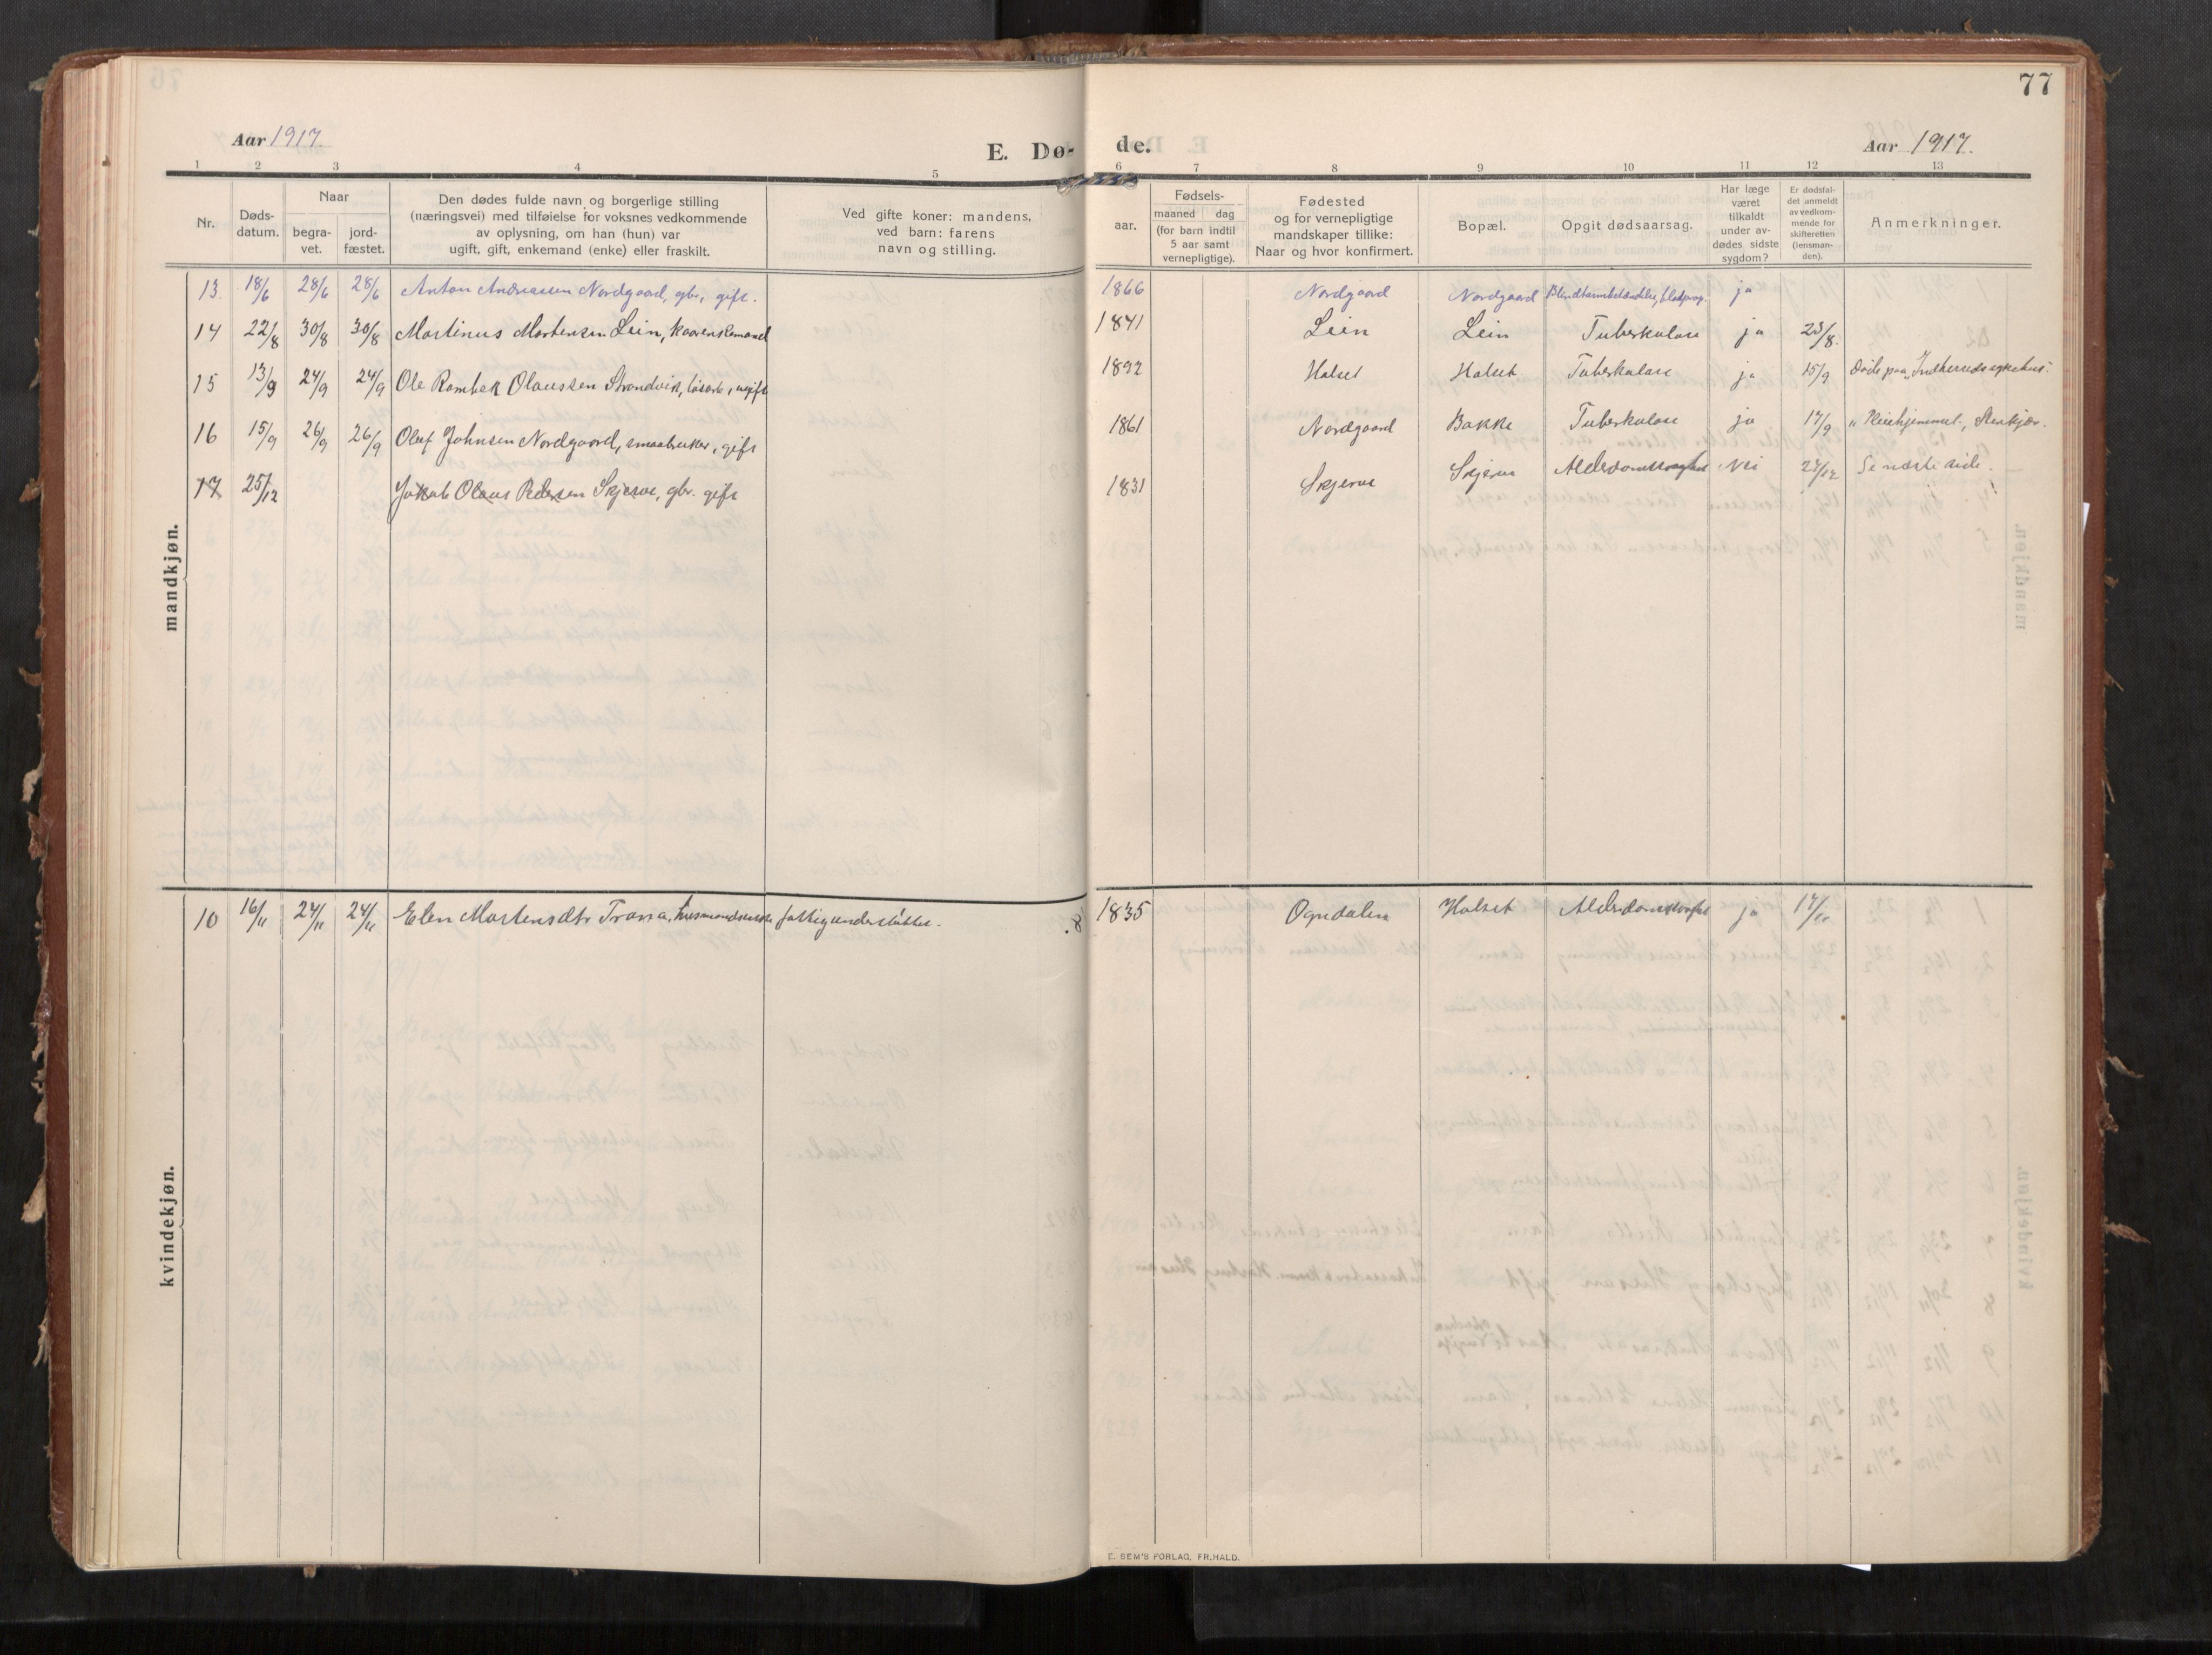 77
Aar 1917.
E. Dø-
de.
Aar 1917.
1 2 3 4 5 6 7 8 9 10 11 12 13
Nr.
Døds-
datum.
Naar
begra-
vet.
jord-
fæstet.
Den dødes fulde navn og borgerlige stilling
(næringsvei) med tilføielse for voksnes vedkommende
av oplysning, om han (hun) var
ugift, gift, enkemand (enke) eller fraskilt.
Ved gifte koner: mandens,
ved barn: farens
navn og stilling.
Fødsels-
aar.
maaned dag
(for barn indtil
5 aar samt
vernepligtige).
Fødested
og for vernepligtige
mandskaper tillike:
Naar og hvor konfirmert.
Bopæl.
Opgit dødsaarsag.
Har læge
været
tilkaldt
under av-
dødes sidste
sygdom?
Er dødsfal-
det anmeldt
av vedkom-
mende for
skifteretten
(lensman-
den).
Anmerkninger.
mandkjøn.
13. 18/6 28/6 28/6 Anton Andreassen Nordgaard, gbr., gift. 1866 Nordgaard Nordgaard ja
14 22/8 30/8 30/8 Martinus Mortensen Lein, kaarenkemand 1841 Lein Lein Tuberkulose ja 23/8.
15 13/9 24/9 24/9 Ole Olaussen Strandvik, løsarb., ugift 1892 Halset Halset Tuberkulose ja 15/9 Døde paa "Indherreds sykehus".
16 15/9 26/9 26/9 Oluf Johnsen Nordgaard, smaabruker, gift 1861 Nordgaard Bakke Tuberkulose ja 17/9 " Pleiehjemmet, Stenkjær.
17 25/12 Jakob Olaus Pedersen Skjerve, gbr. gift 1831 Skjerve Skjerve Alderdomssvaghet Nei 27/12 Se næste side.
kvindekjøn.
10 16/11 24/11 24/11 Elen Mortensdtr Trana, husmandsenke fattigunderstøttet. 1835 Ogndalen Halset ja 17/11
E. SEM'S FORLAG, FR.HALD.